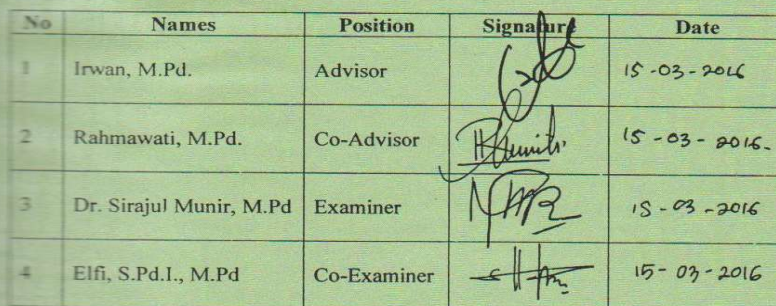 No Names Position Signature Date
1 Irwan, M.Pd. Advisor 15-03-2016
2 Rahmawati, M.Pd. Co-Advisor 15-03-2016.
3 Dr. Sirajul Munir, M.Pd Examiner 15-03-2016
4 Elfi, S.Pd.I., M.Pd Co-Examiner 15-03-2016